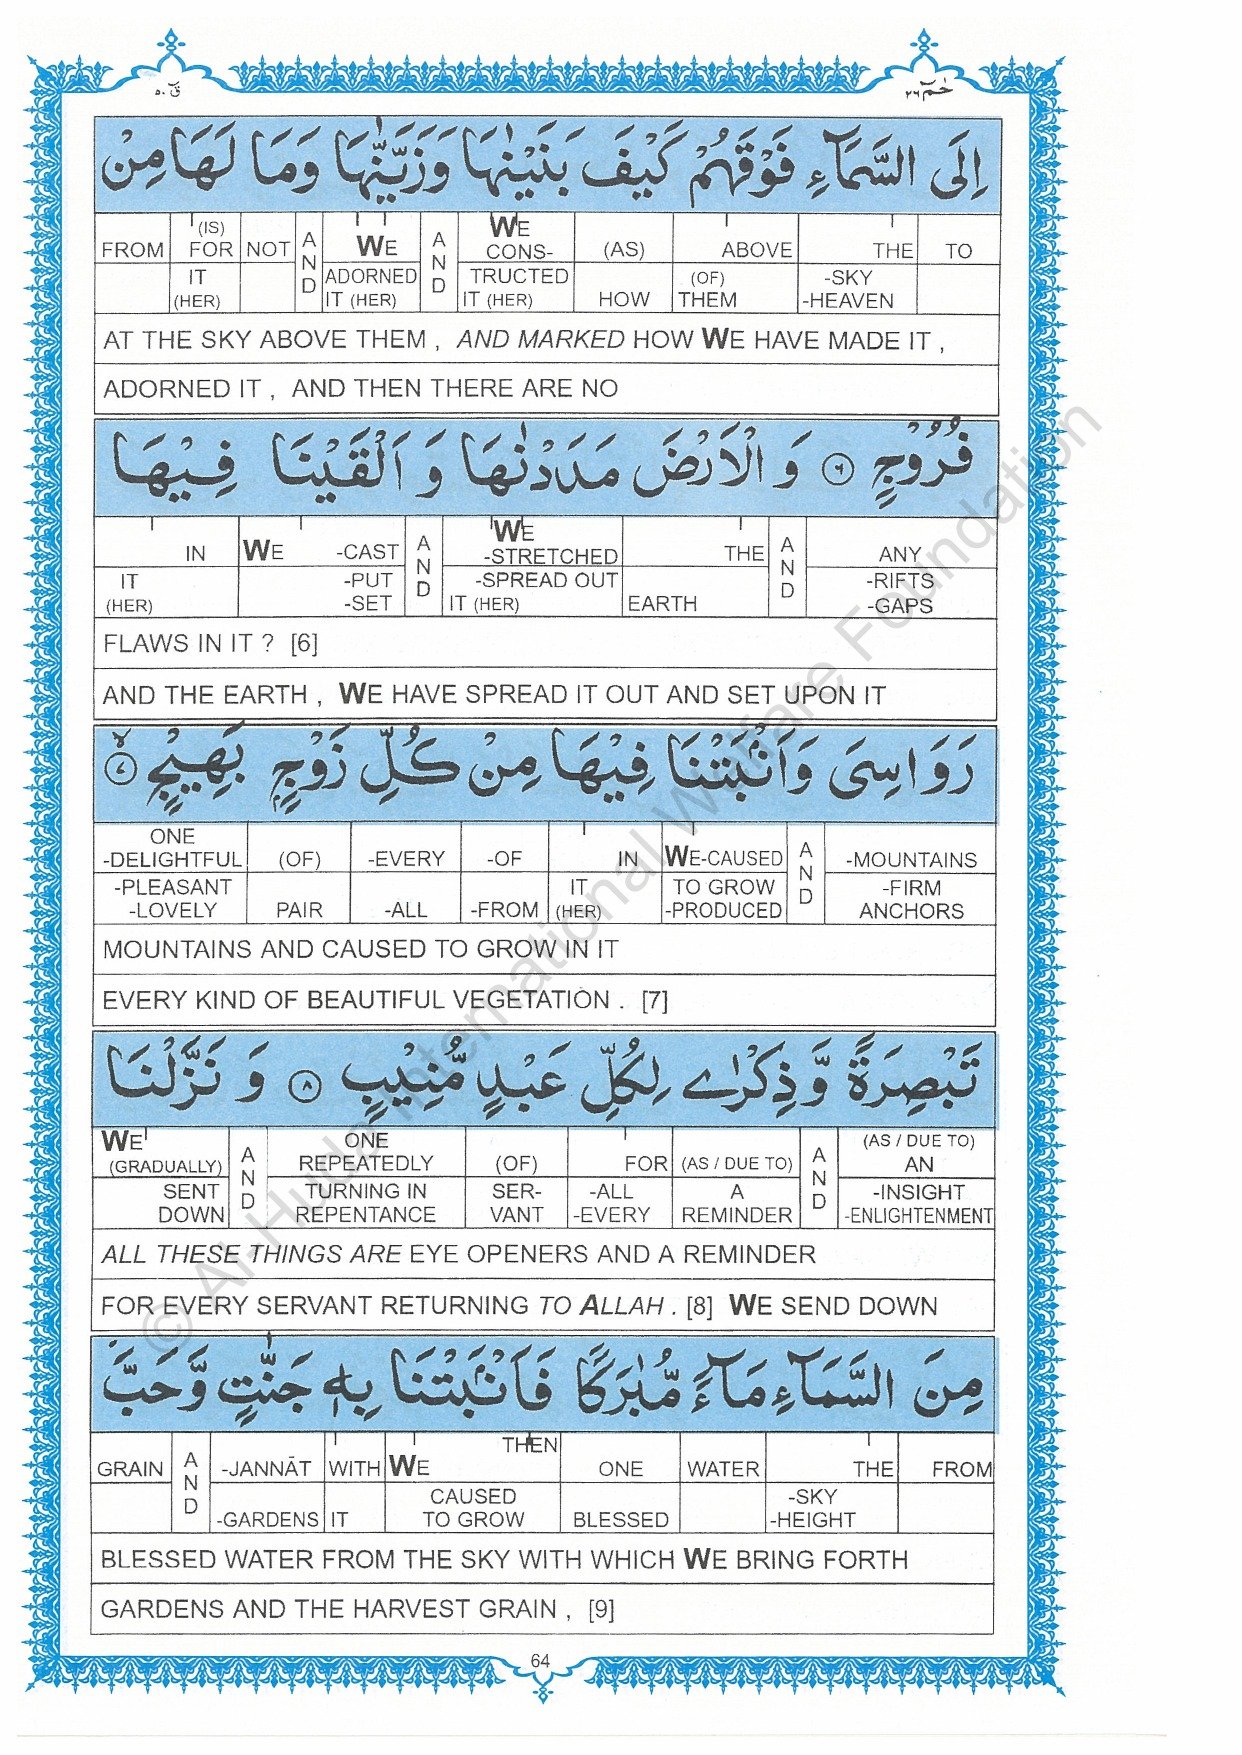 قٓ ٥٠
حٰمٓ ٢٦
اِلَى السَّمَآءِ فَوْقَهُمْ كَيْفَ بَنَيْنٰهَا وَزَيَّنّٰهَا وَمَا لَهَا مِنْ
FROM (IS) FOR NOT AND WE AND WE CONS- (AS) ABOVE THE TO
IT (HER) ADORNED IT (HER) TRUCTED IT (HER) HOW (OF) THEM -SKY -HEAVEN
AT THE SKY ABOVE THEM , AND MARKED HOW WE HAVE MADE IT ,
ADORNED IT , AND THEN THERE ARE NO
فُرُوْجٍ ٦ وَ الْاَرْضَ مَدَدْنٰهَا وَ اَلْقَيْنَا فِيْهَا
IN WE -CAST AND WE -STRETCHED THE AND ANY
IT (HER) -PUT -SET -SPREAD OUT IT (HER) EARTH -RIFTS -GAPS
FLAWS IN IT ? [6]
AND THE EARTH , WE HAVE SPREAD IT OUT AND SET UPON IT
رَوَاسِىَ وَاَنْۢبَتْنَا فِيْهَا مِنْ كُلِّ زَوْجٍۢ بَهِيْجٍ ٧ لا
ONE -DELIGHTFUL (OF) -EVERY -OF IN WE-CAUSED AND -MOUNTAINS
-PLEASANT -LOVELY PAIR -ALL -FROM IT (HER) TO GROW -PRODUCED -FIRM ANCHORS
MOUNTAINS AND CAUSED TO GROW IN IT
EVERY KIND OF BEAUTIFUL VEGETATION . [7]
تَبْصِرَةً وَّذِكْرٰى لِكُلِّ عَبْدٍ مُّنِيْبٍ ٨ وَ نَزَّلْنَا
WE (GRADUALLY) AND ONE REPEATEDLY (OF) FOR (AS / DUE TO) AND (AS / DUE TO) AN
SENT DOWN TURNING IN REPENTANCE SER- VANT -ALL -EVERY A REMINDER -INSIGHT -ENLIGHTENMENT
ALL THESE THINGS ARE EYE OPENERS AND A REMINDER
FOR EVERY SERVANT RETURNING TO ALLAH . [8] WE SEND DOWN
مِنَ السَّمَآءِ مَآءً مُّبٰرَكًا فَاَنْۢبَتْنَا بِهٖ جَنّٰتٍ وَّحَبَّ
GRAIN AND -JANNĀT WITH WE THEN ONE WATER THE FROM
-GARDENS IT CAUSED TO GROW BLESSED -SKY -HEIGHT
BLESSED WATER FROM THE SKY WITH WHICH WE BRING FORTH
GARDENS AND THE HARVEST GRAIN , [9]
64
© Al-Huda International Welfare Foundation